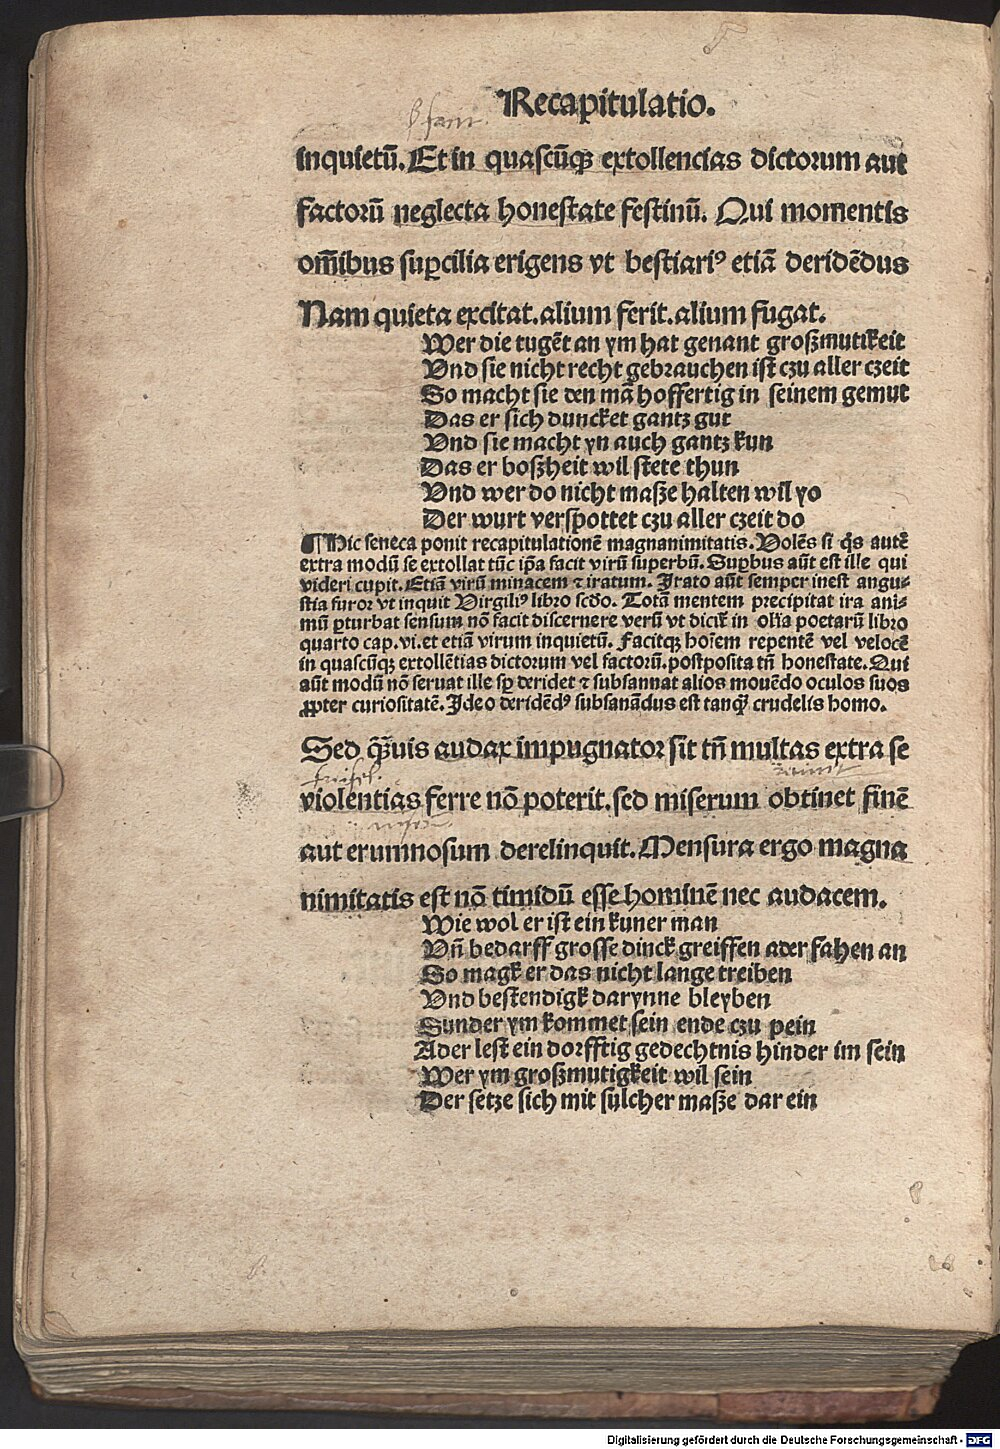 Recapitulatio.
inquietū. Et in quascūq; extollencias dictorum aut
factorū neglecta honestate festinū. Qui momentis
om̄ibus suꝑcilia erigens vt bestiariꝰ etiā deridēdus
Nam quieta excitat. alium ferit. alium fugat.
Wer die tugēt an ym hat genant großmutikeit
Vnd sie nicht recht gebrauchen ist czu aller czeit
So macht sie den mā hoffertig in seinem gemut
Das er sich duncket gantz gut
Vnd sie macht yn auch gantz kun
Das er boßheit wil stete thun
Vnd wer do nicht maße halten wil yo
Der wurt verspottet czu aller czeit do
¶ Hic seneca ponit recapitulationē magnanimitatis. Volēs si q̇s autē
extra modū se extollat tūc ip̄a facit virū superbū. Suꝑbus aūt est ille qui
videri cupit. Etiā virū minacem ⁊ iratum. Irato aūt semper inest angu⸗
stia furor vt inquit Virgiliꝰ libro scd̄o. Totā mentem precipitat ira ani⸗
mū ꝑturbat sensum nō facit discernere verū vt dicit̄ in ol̄ia poetarū libro
quarto cap. vi. et etiā virum inquietū. Facitq; hoīem repentē vel velocē
in quascūq; extollētias dictorum vel factorū. postposita tn̄ honestate. Qui
aūt modū nō seruat ille sꝑ deridet ⁊ subsannat alios mouēdo oculos suos
ꝓpter curiositatē. Ideo deridēdꝰ subsanādus est tanq̄ crudelis homo.
Sed q̄uis audax impugnator sit tn̄ multas extra se
violentias ferre nō poterit. sed miserum obtinet finē
aut erumnosum derelinquit. Mensura ergo magna
nimitatis est nō timidū esse hominē nec audacem.
Wie wol er ist ein kuner man
Vn̄ bedarff grosse dinck greiffen ader fahen an
So magk er das nicht lange treiben
Vnd bestendigk darynne bleyben
Sunder ym kommet sein ende czu pein
Ader lest ein dorfftig gedechtnis hinder im sein
Wer ym großmutigkeit wil sein
Der setze sich mit sulcher maße dar ein
Digitalisierung gefördert durch die Deutsche Forschungsgemeinschaft - DFG